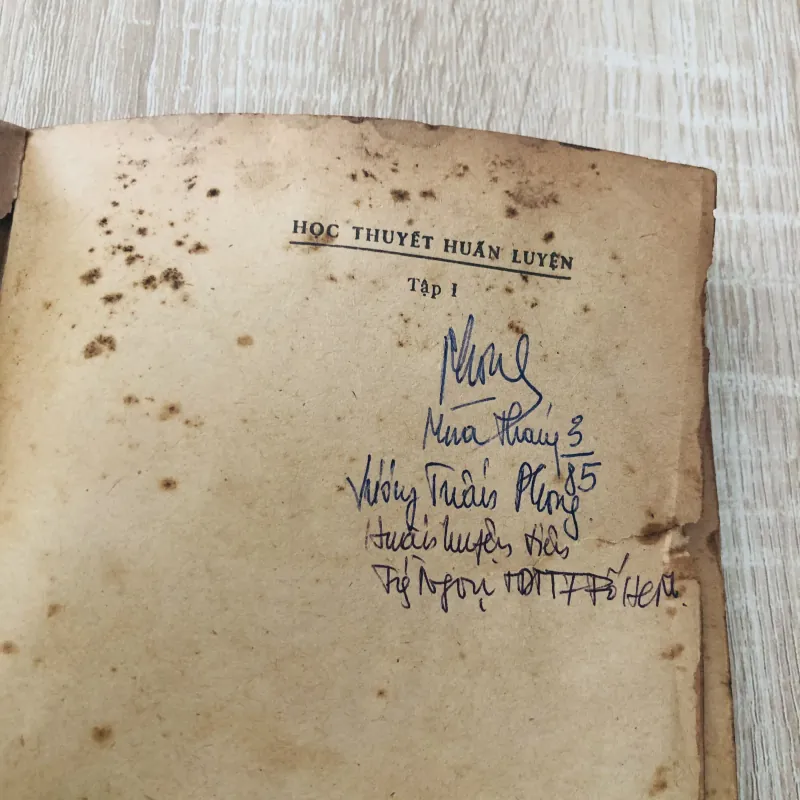 HỌC THUYẾT HUẤN LUYỆN
Tập I
Phong
Mùa tháng 3/85
Vương Tuấn Phong
Huấn luyện viên
TDTT TP HCM.